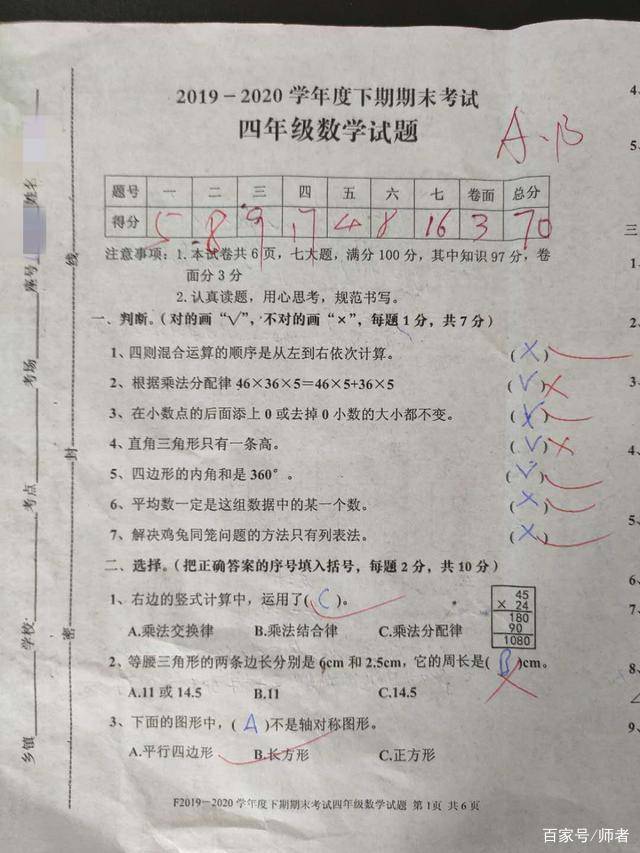 2019－2020 学年度下期期末考试
四年级数学试题
A·B
题号 一 二 三 四 五 六 七 卷面 总分
得分 5 8 9 17 4 8 16 3 70
注意事项：1. 本试卷共 6 页，七大题，满分 100 分，其中知识 97 分，卷
面分 3 分
2. 认真读题，用心思考，规范书写。
一、判断。（对的画“√”，不对的画“×”，每题 1 分，共 7 分）
1、四则混合运算的顺序是从左到右依次计算。 (×)
2、根据乘法分配律 46×36×5＝46×5+36×5 (√)×
3、在小数点的后面添上 0 或去掉 0 小数的大小都不变。
4、直角三角形只有一条高。 (√)×
5、四边形的内角和是 360°。 (√)
6、平均数一定是这组数据中的某一个数。 (×)
7、解决鸡兔同笼问题的方法只有列表法。 (×)
二、选择。（把正确答案的序号填入括号，每题 2 分，共 10 分）
1、右边的竖式计算中，运用了( C )。
45
× 24
180
90
1080
A.乘法交换律 B.乘法结合律 C.乘法分配律
2、等腰三角形的两条边长分别是 6cm 和 2.5cm，它的周长是( B )cm。
A.11 或 14.5 B.11 C.14.5
3、下面的图形中，( A )不是轴对称图形。
A.平行四边形 B.长方形 C.正方形
F2019－2020 学年度下期期末考试四年级数学试题 第 1页 共 6 页
乡镇 学校 考点 考场 座号 姓名
密 封 线
4、
5、
三
1、
2、
3、
4、
5、
6、
7、
8、
9、
百家号/师者